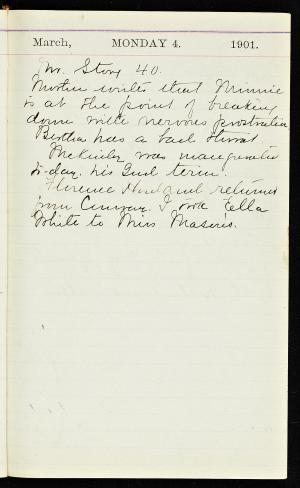 March, MONDAY 4. 1901.
Mr. Story 40.
Mother writes that Minnie
is at the point of breaking
down with nervous prostration
Bertha has a bad throat
McKinley was inaugurated
to-day. his 2nd term.
Florence returned
from Conway. I took Ella
White to Miss Mason's.